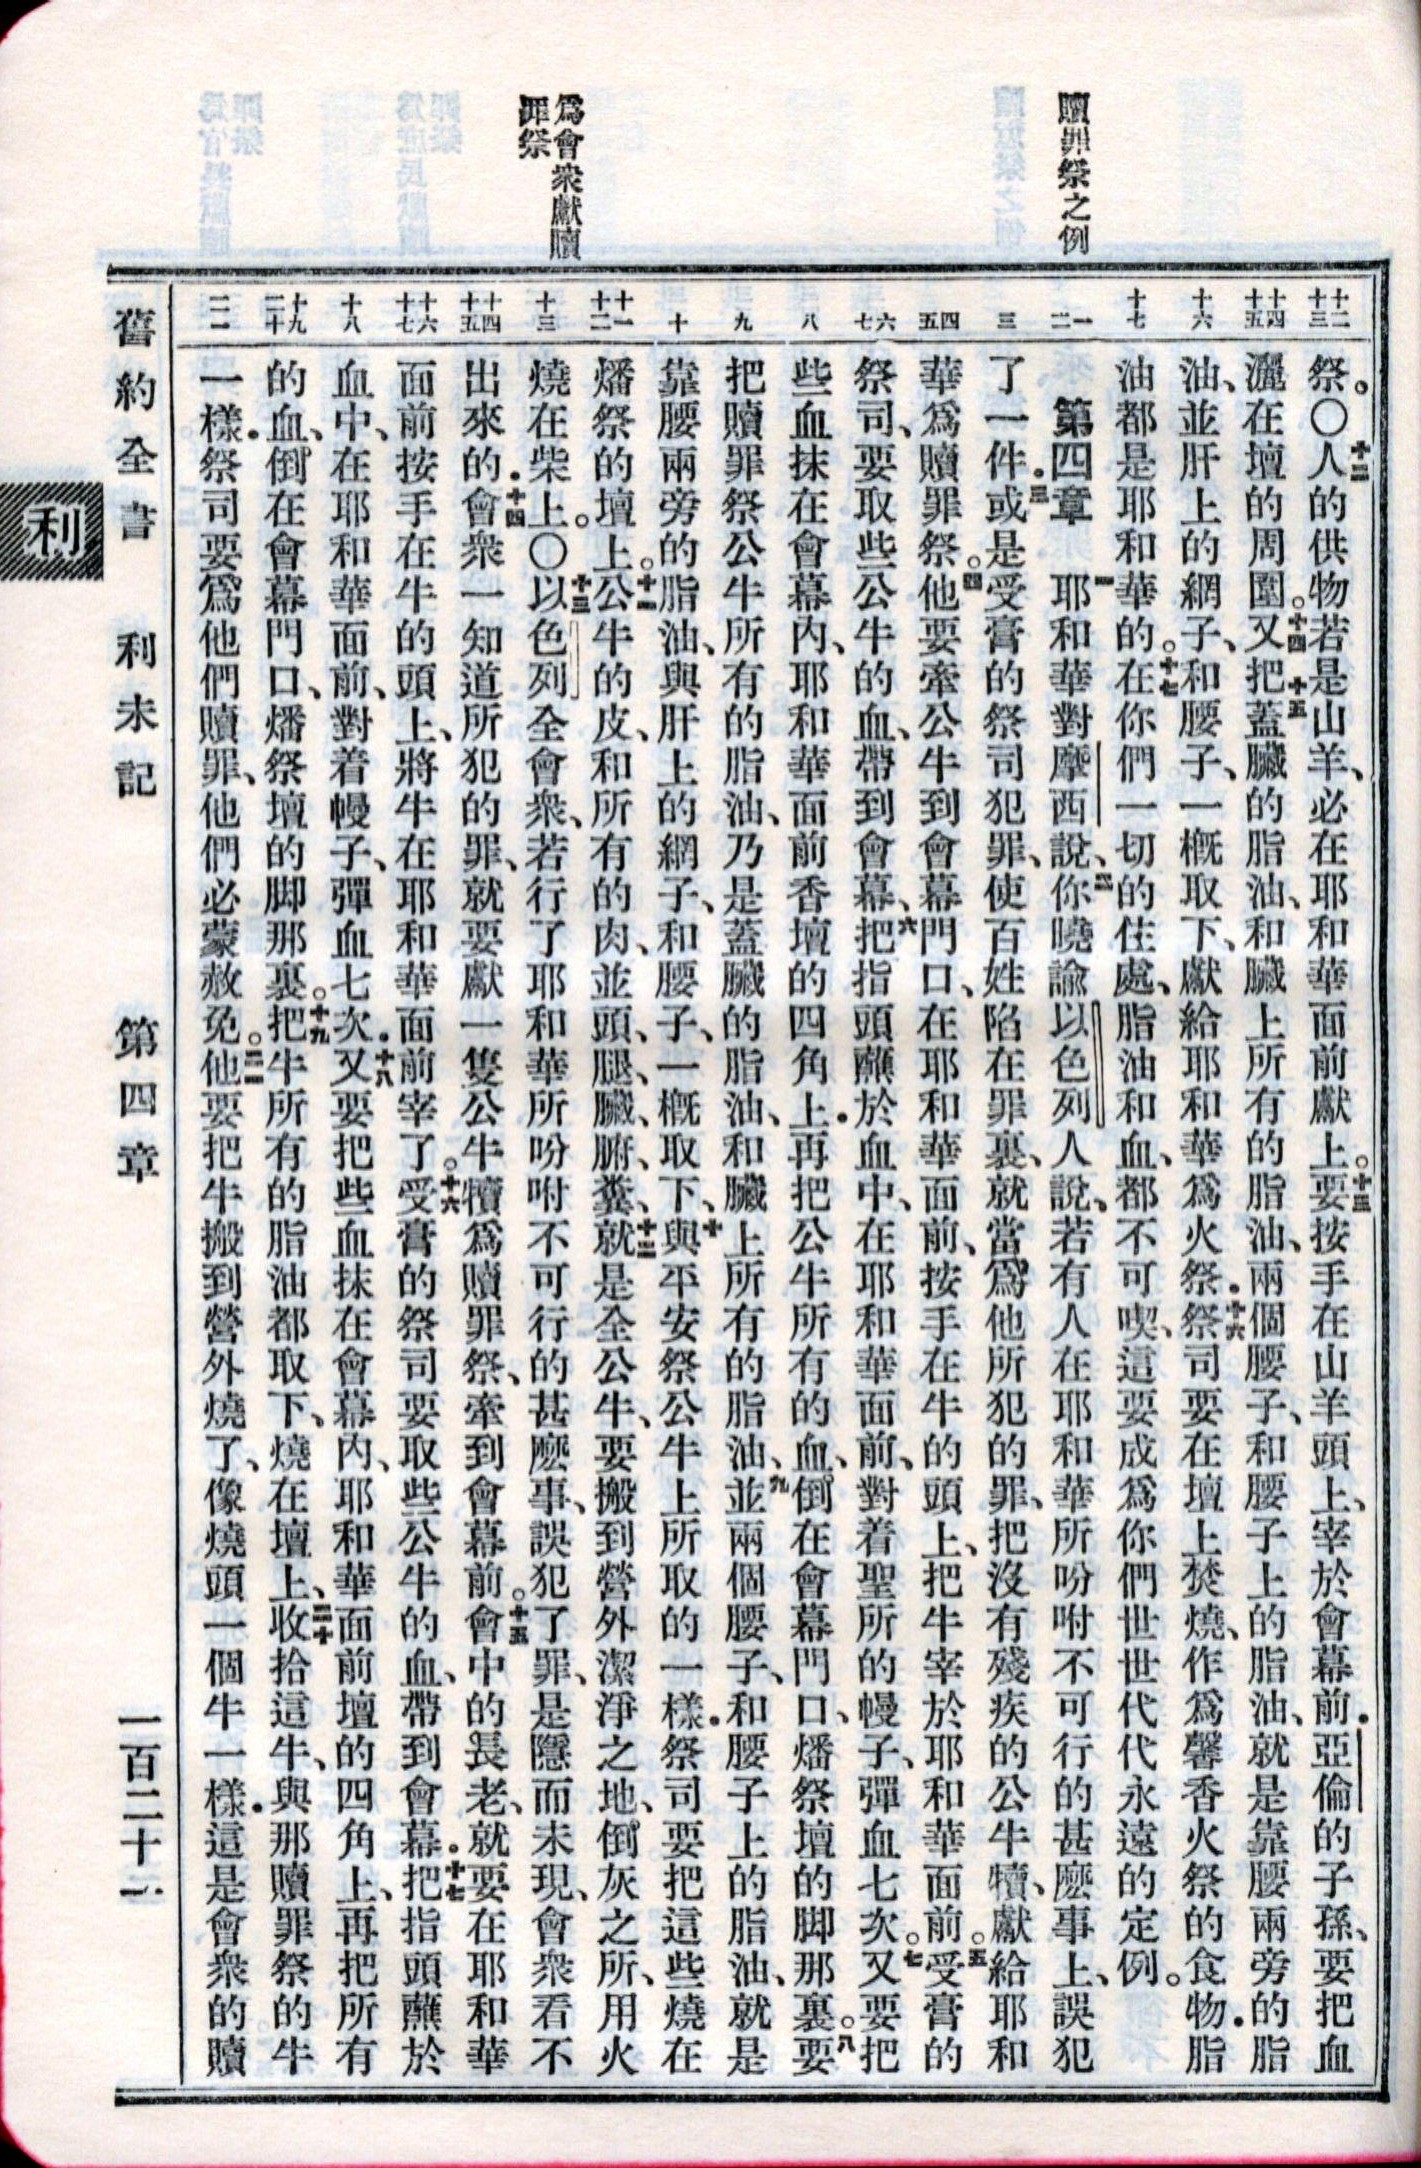 贖罪祭之例
爲會衆獻贖
罪祭
十二 十三
十四 十五
十六
十七
一 二
三
四 五
六 七
八
九
十
十一 十二
十三
十四 十五
十六 十七
十八
十九 二十
二一
祭。〇十二人的供物若是山羊、必在耶和華面前獻上。十三要按手在山羊頭上、宰於會幕前．亞倫的子孫、要把血
灑在壇的周圍。十四又把十五蓋臟的脂油、和臟上所有的脂油、兩個腰子、和腰子上的脂油、就是靠腰兩旁的脂
油、並肝上的網子、和腰子、一概取下、獻給耶和華爲火祭．十六祭司要在壇上焚燒、作爲馨香火祭的食物．脂
油都是耶和華的。十七在你們一切的住處、脂油和血、都不可喫、這要成爲你們世世代代永遠的定例。
第四章 一耶和華對摩西說、二你曉諭以色列人說、若有人在耶和華所吩咐不可行的甚麽事上、誤犯
了一件．三或是受膏的祭司犯罪、使百姓陷在罪裏、就當爲他所犯的罪、把沒有殘疾的公牛犢、獻給耶和
華爲贖罪祭。四他要牽公牛到會幕門口、在耶和華面前、按手在牛的頭上、把牛宰於耶和華面前。五受膏的
祭司、要取些公牛的血、帶到會幕、六把指頭蘸於血中、在耶和華面前、對着聖所的幔子、彈血七次。七又要把
些血抹在會幕內、耶和華面前香壇的四角上．再把公牛所有的血、倒在會幕門口、燔祭壇的脚那裏。八要
把贖罪祭公牛所有的脂油、乃是蓋臟的脂油、和臟上所有的脂油、九並兩個腰子、和腰子上的脂油、就是
靠腰兩旁的脂油、與肝上的網子、和腰子、一概取下、十與平安祭公牛上所取的一樣．祭司要把這些燒在
燔祭的壇上。十一公牛的皮、和所有的肉、並頭、腿、臟、腑、糞、十二就是全公牛、要搬到營外潔淨之地、倒灰之所、用火
燒在柴上。〇十三以色列全會衆、若行了耶和華所吩咐不可行的甚麽事、誤犯了罪、是隱而未現、會衆看不
出來的．十四會衆一知道所犯的罪、就要獻一隻公牛犢爲贖罪祭、牽到會幕前。十五會中的長老、就要在耶和華
面前按手在牛的頭上、將牛在耶和華面前宰了。十六受膏的祭司要取些公牛的血、帶到會幕．十七把指頭蘸於
血中、在耶和華面前、對着幔子、彈血七次．十八又要把些血抹在會幕內、耶和華面前壇的四角上、再把所有
的血、倒在會幕門口、燔祭壇的脚那裏。十九把牛所有的脂油都取下、燒在壇上、二十收拾這牛、與那贖罪祭的牛
一樣．祭司要爲他們贖罪、他們必蒙赦免。二一他要把牛搬到營外燒了、像燒頭一個牛一樣．這是會衆的贖
舊約全書 利未記 第四章 一百二十一
利